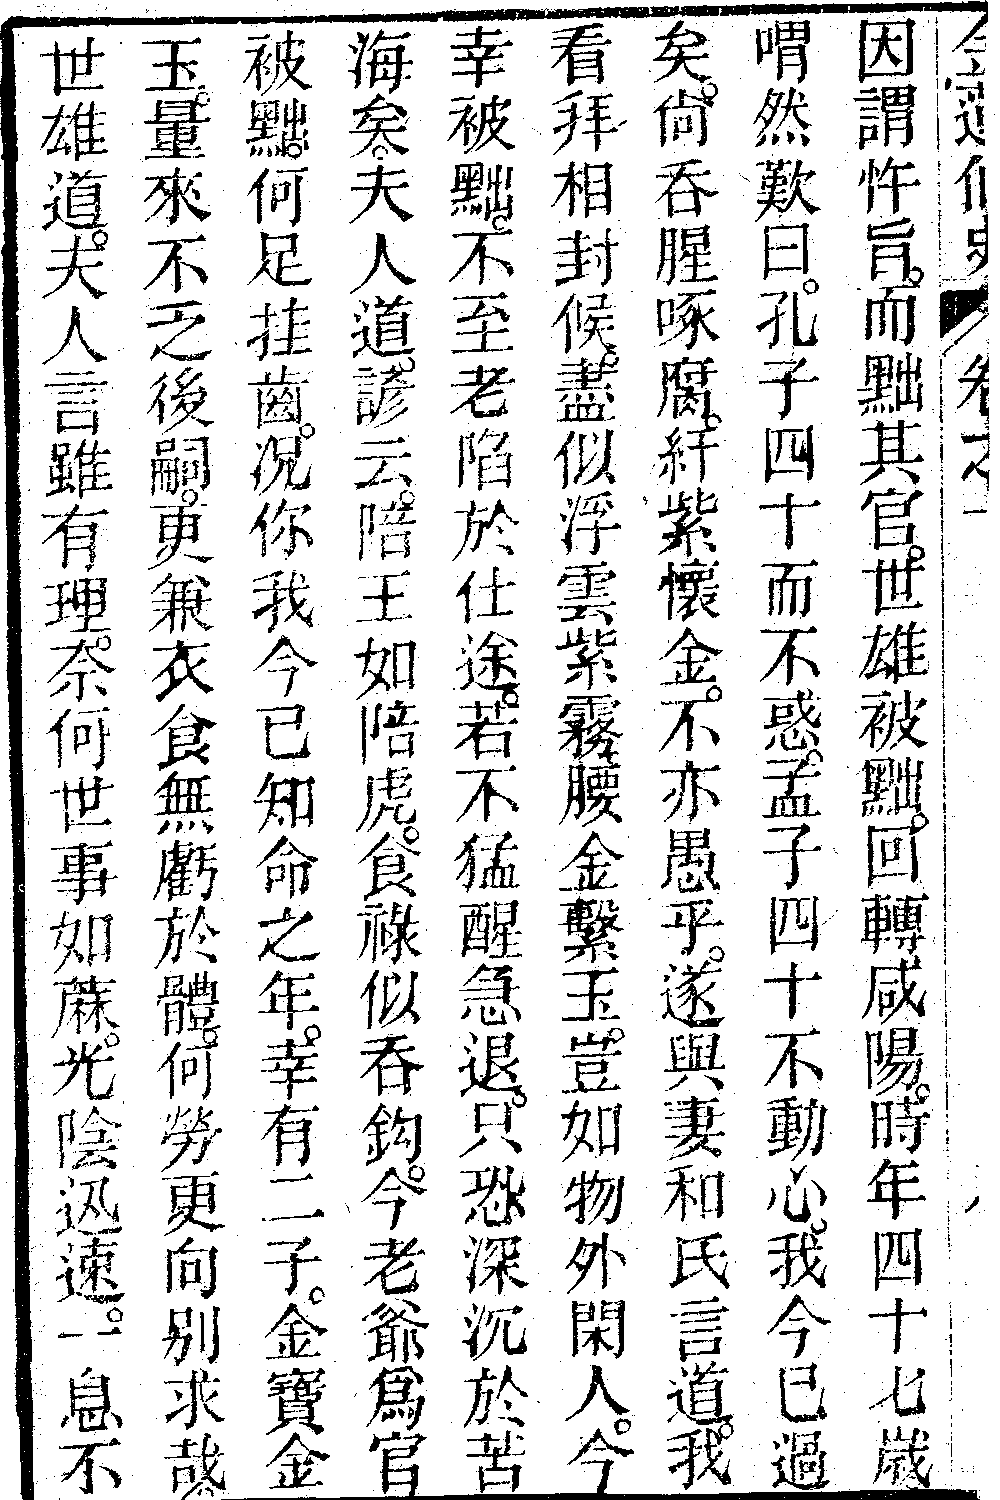 因謂忤旨。而黜其官。世雄被黜。回轉咸陽。時年四十七歲
喟然歎曰。孔子四十而不惑。孟子四十不動心。我今已過
矣。尙吞腥啄腐。紆紫懷金。不亦愚乎。遂與妻和氏言道。我
看拜相封候。盡似浮雲紫霧。腰金繫玉。豈如物外閑人。今
幸被黜。不至老陷於仕途。若不猛醒急退。只恐深沉於苦
海矣。夫人道。諺云。陪王如陪虎。食祿似吞鈎。今老爺爲官
被黜。何足挂齒。況你我今已知命之年。幸有二子。金寶金
玉。量來不乏後嗣。更兼衣食無虧於體。何勞更向别求哉。
世雄道。夫人言雖有理。奈何世事如蔴。光陰迅速。一息不